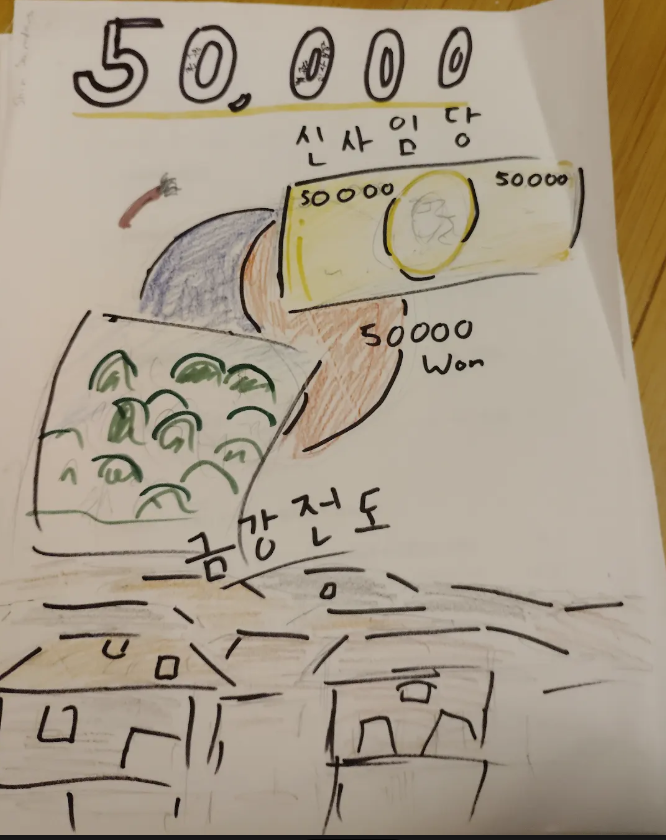 50,000
신사임당
50000 50000
50000
Won
금강전도